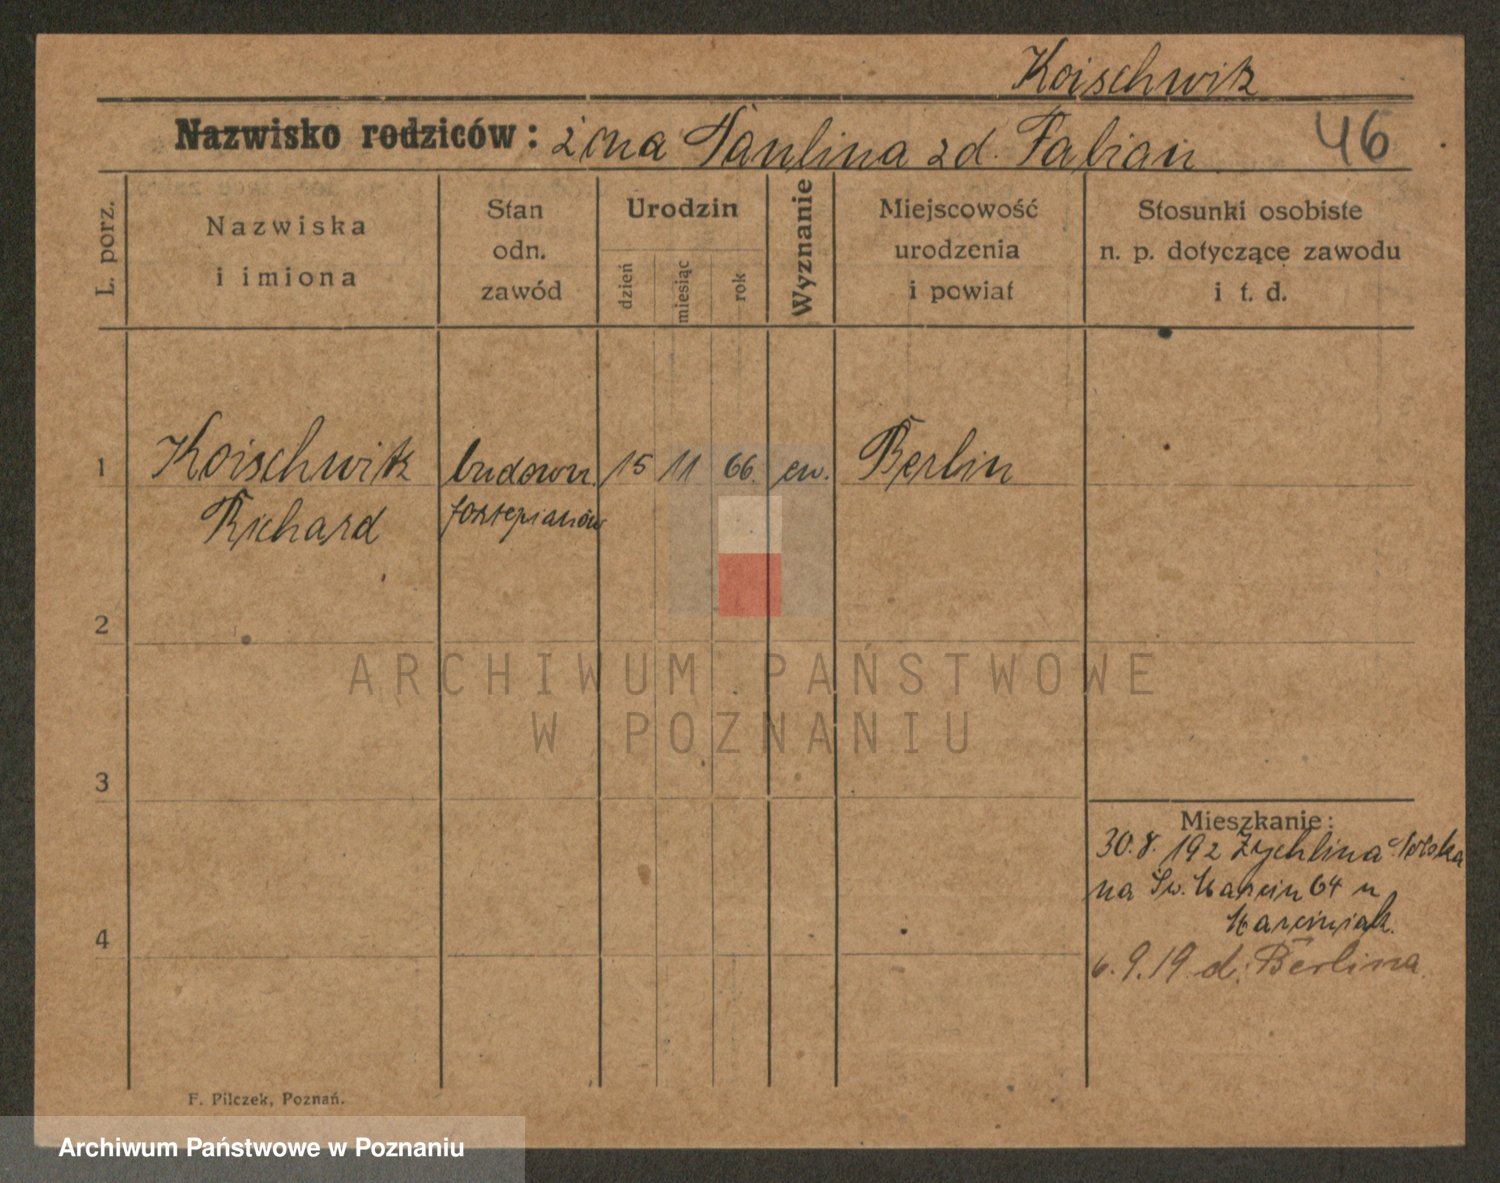 Koischwitz
Nazwisko rodziców: żona Paulina zd. Fabian 46
L. porz.
Nazwiska
i imiona
Stan
odn.
zawód
Urodzin
dzień
miesiąc
rok
Wyznanie
Miejscowość
urodzenia
i powiat
Stosunki osobiste
n. p. dotyczące zawodu
i t. d.
1 Koischwitz budown. 15 11 66. ew. Berlin
Richard fortepianów
2
ARCHIWUM PAŃSTWOWE
W POZNANIU
3
Mieszkanie:
30.8.19 z Żychlina
na Św. Marcin 64 u
Marciniak.
4
6.9.19 d. Berlina.
F. Pilczek, Poznań.
Archiwum Państwowe w Poznaniu